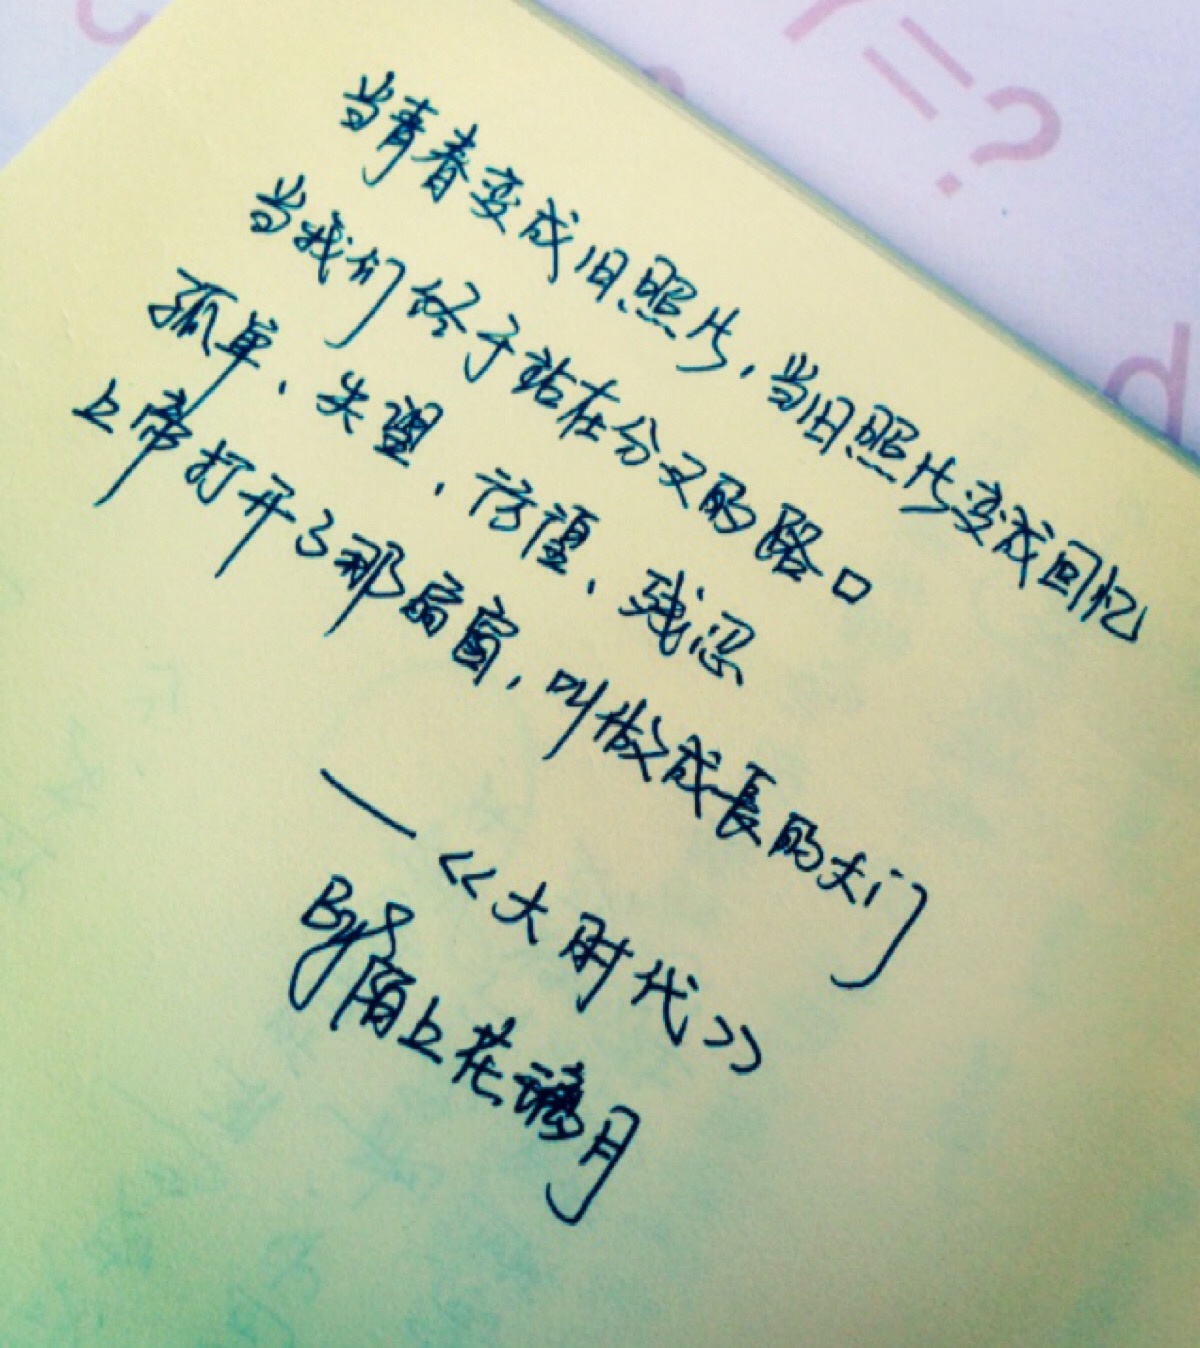 当青春变成旧照片,当旧照片变成回忆
当我们终于站在分叉的路口
孤单、失望、彷徨、残忍
上帝打开了那扇窗,叫做成長的大门
—《大时代》
By 陌上花 月
=?
d